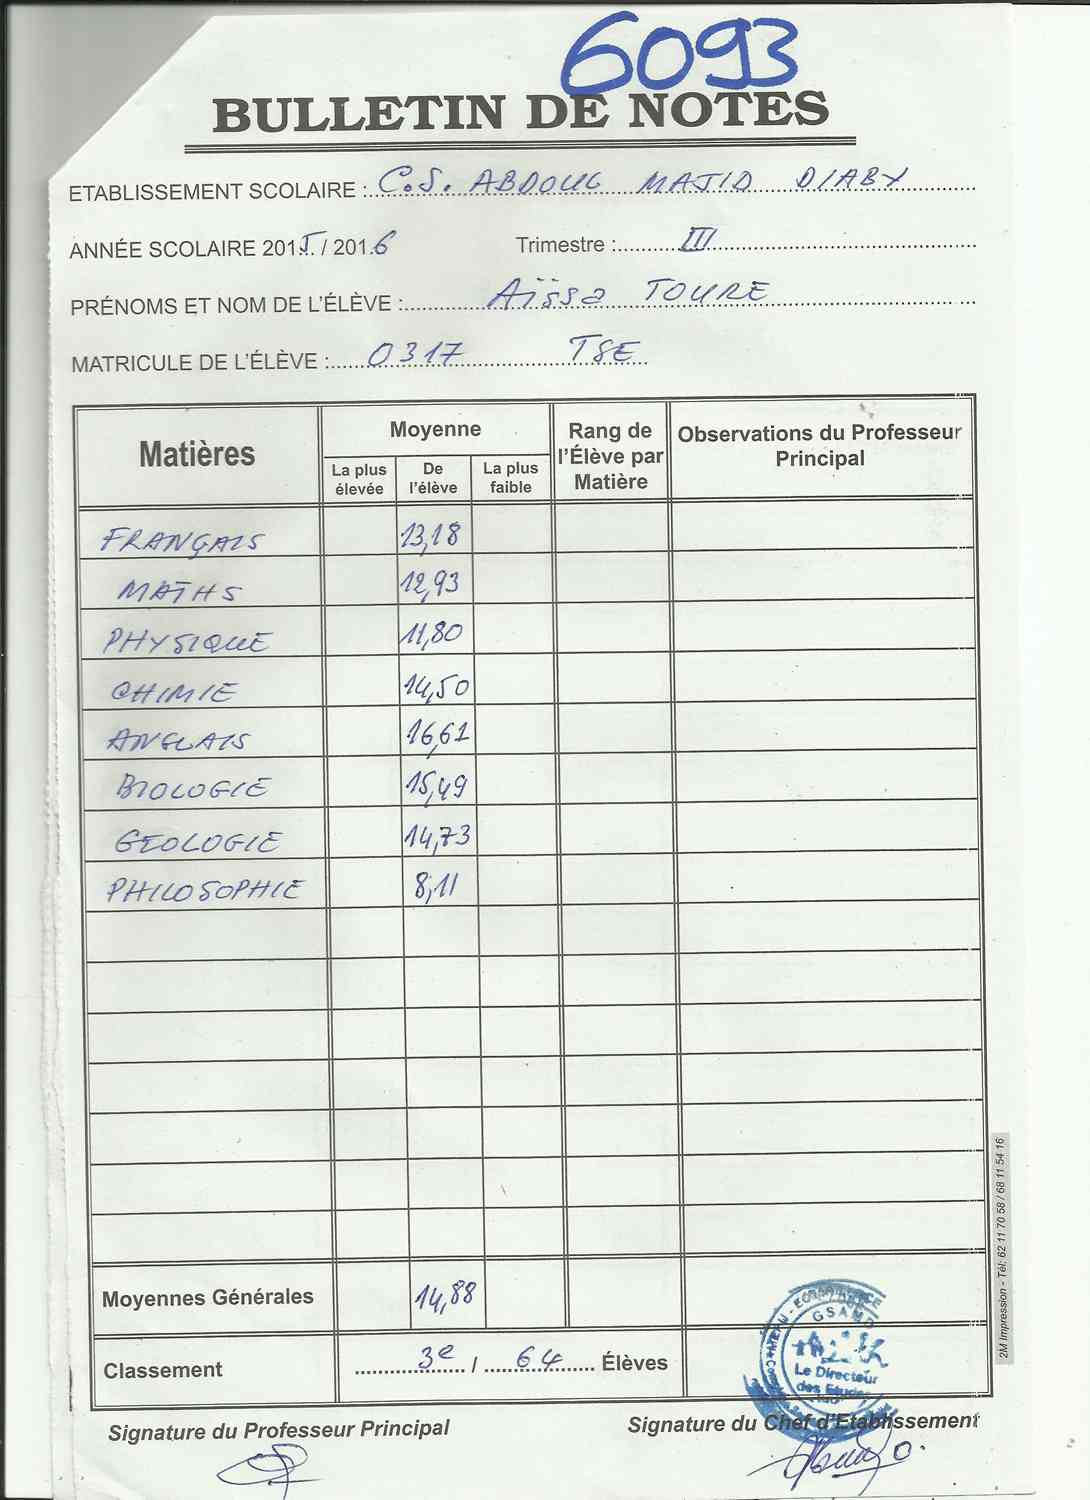 6093
BULLETIN DE NOTES
ETABLISSEMENT SCOLAIRE : C.S. ABDOUL MAJID DIABY
ANNÉE SCOLAIRE 2015 / 2016 Trimestre : III
PRÉNOMS ET NOM DE L'ÉLÈVE : Aïssa TOURE
MATRICULE DE L'ÉLÈVE : 0317 TSE
Matières Moyenne Rang de l'Élève par Matière Observations du Professeur Principal
La plus élevée De l'élève La plus faible
FRANÇAIS 13,18
MATHS 12,93
PHYSIQUE 11,80
CHIMIE 14,50
ANGLAIS 16,61
BIOLOGIE 15,49
GEOLOGIE 14,73
PHILOSOPHIE 8,11
Moyennes Générales 14,88
Classement 3e / 64 Élèves
GSAMD
Le Directeur
des Etudes
Signature du Professeur Principal Signature du Chef d'Etablissement
2M Impression - Tél: 62 11 70 58 / 68 11 54 16